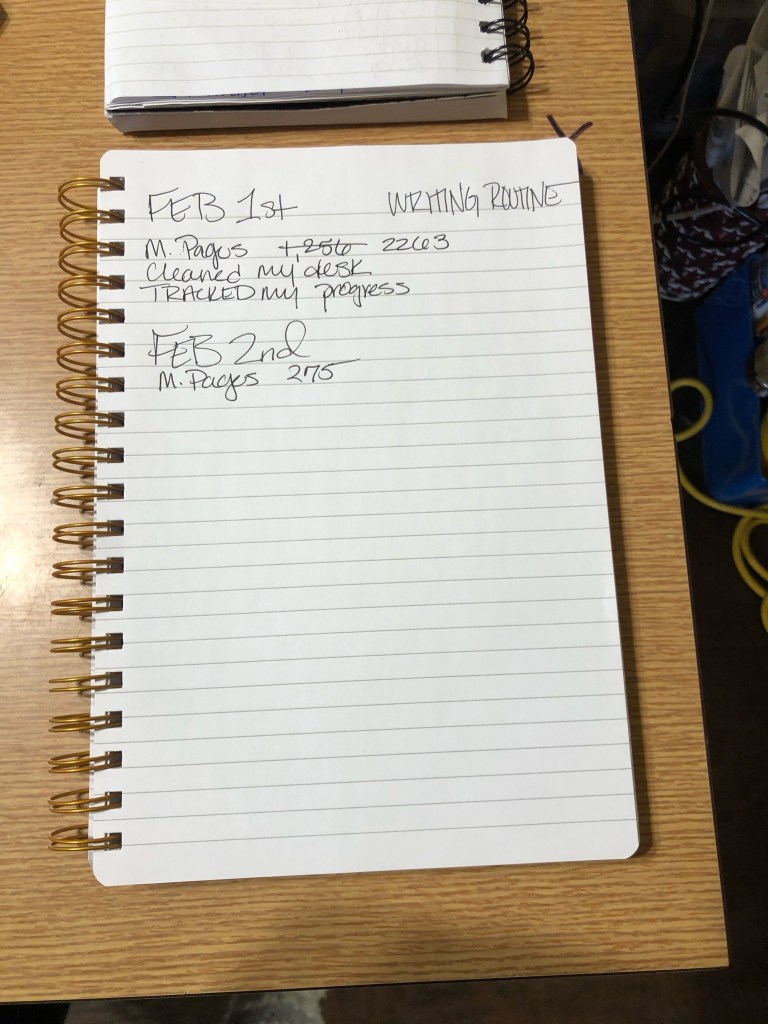 FEB 1st WRITING ROUTINE
M. Pages 1,256 2263
Cleaned my desk
TRACKED my progress
FEB 2nd
M. Pages 275